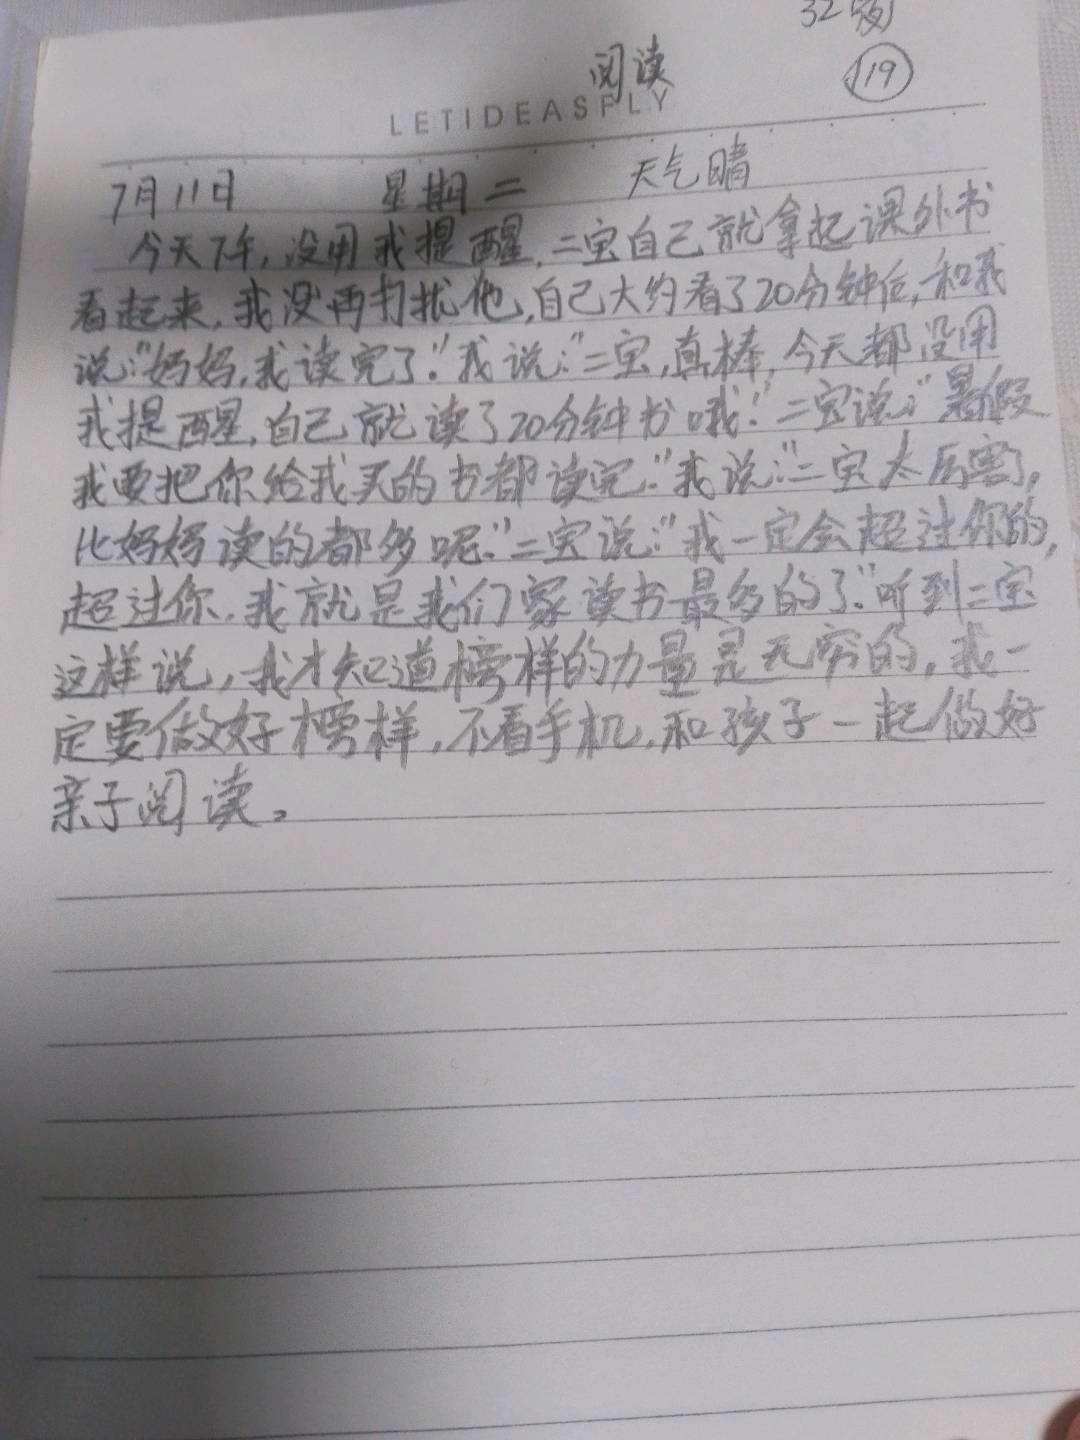 32级
119
阅读
LETIDEASFLY
7月11日 星期二 天气晴
今天下午,没用我提醒,二宝自己就拿起课外书
看起来,我没再打扰他,自己大约看了20分钟后,和我
说:"妈妈,我读完了."我说:"二宝,真棒,今天都没用
我提醒,自己就读了20分钟书哦!"二宝说:"暑假
我要把你给我买的书都读完."我说:"二宝太厉害了,
比妈妈读的都多呢."二宝说:"我一定会超过你的,
超过你,我就是我们家读书最多的了."听到二宝
这样说,我才知道榜样的力量是无穷的,我一
定要做好榜样,不看手机,和孩子一起做好
亲子阅读。